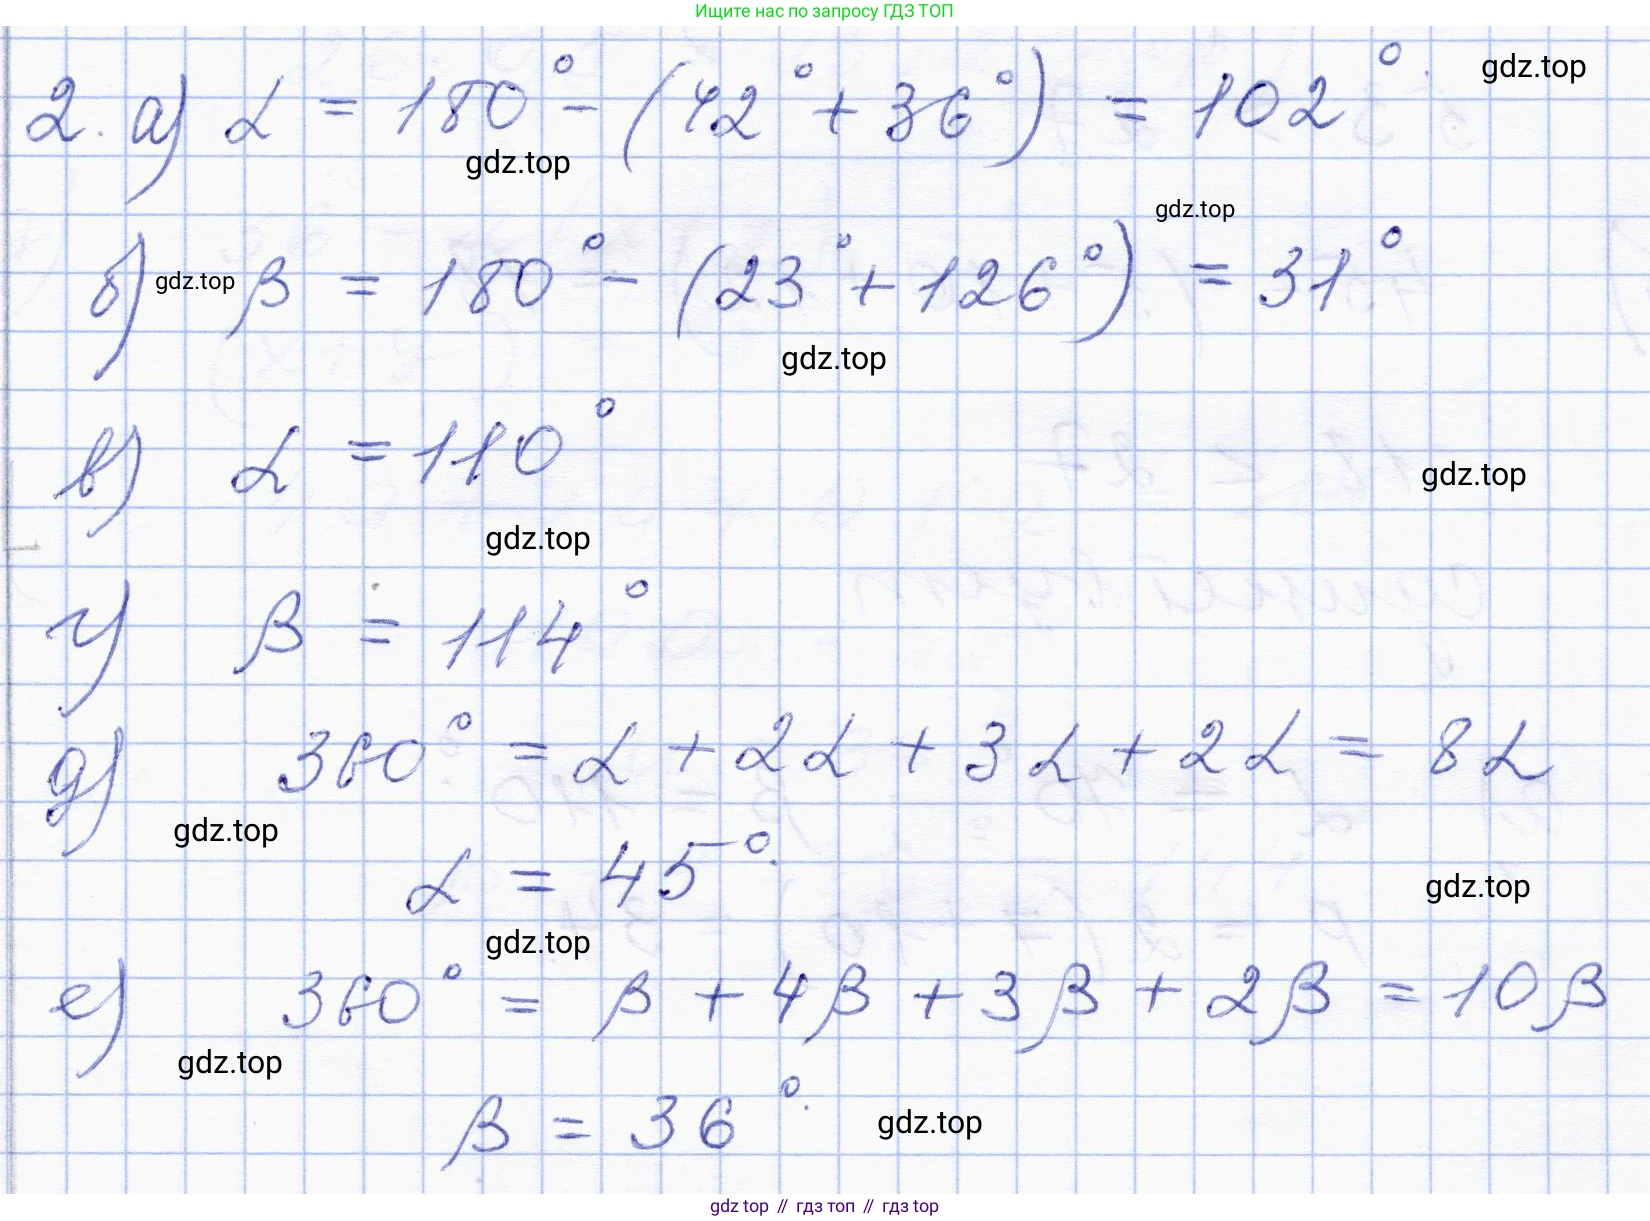 Ищите нас по запросу ГДЗ ТОП
gdz.top
2. а) α = 180° − (42° + 36°) = 102°.
gdz.top
gdz.top
б) gdz.top β = 180° − (23° + 126°) = 31°
gdz.top
в) α = 110°
gdz.top
gdz.top
г) β = 114°
д) 360° = α + 2α + 3α + 2α = 8α
gdz.top
α = 45°.
gdz.top
gdz.top
е) 360° = β + 4β + 3β + 2β = 10β
gdz.top
β = 36°.
gdz.top
gdz top // гдз топ // gdz top